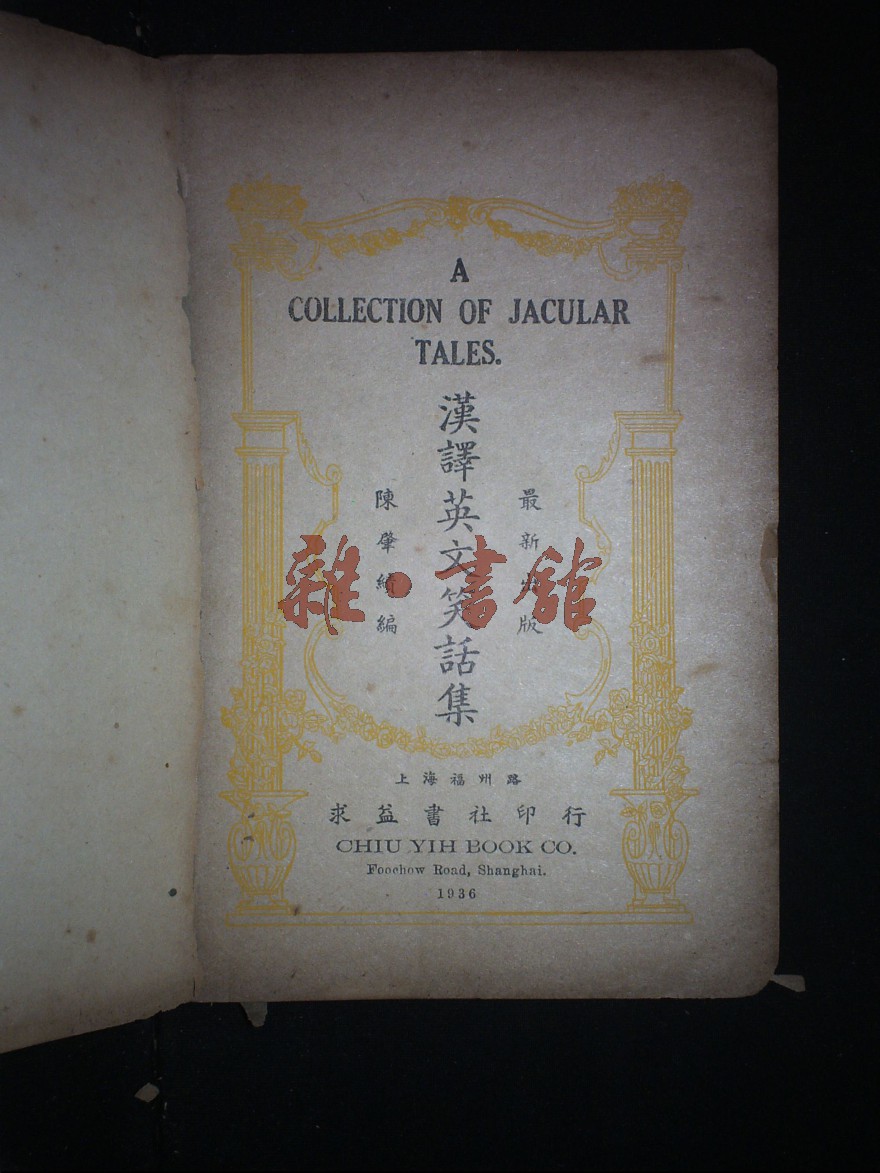 A
COLLECTION OF JACULAR
TALES.
漢譯英文笑話集
最新出版
陳肇績編
雜·書舘
上海福州路
求益書社印行
CHIU YIH BOOK CO.
Foochow Road, Shanghai.
1936